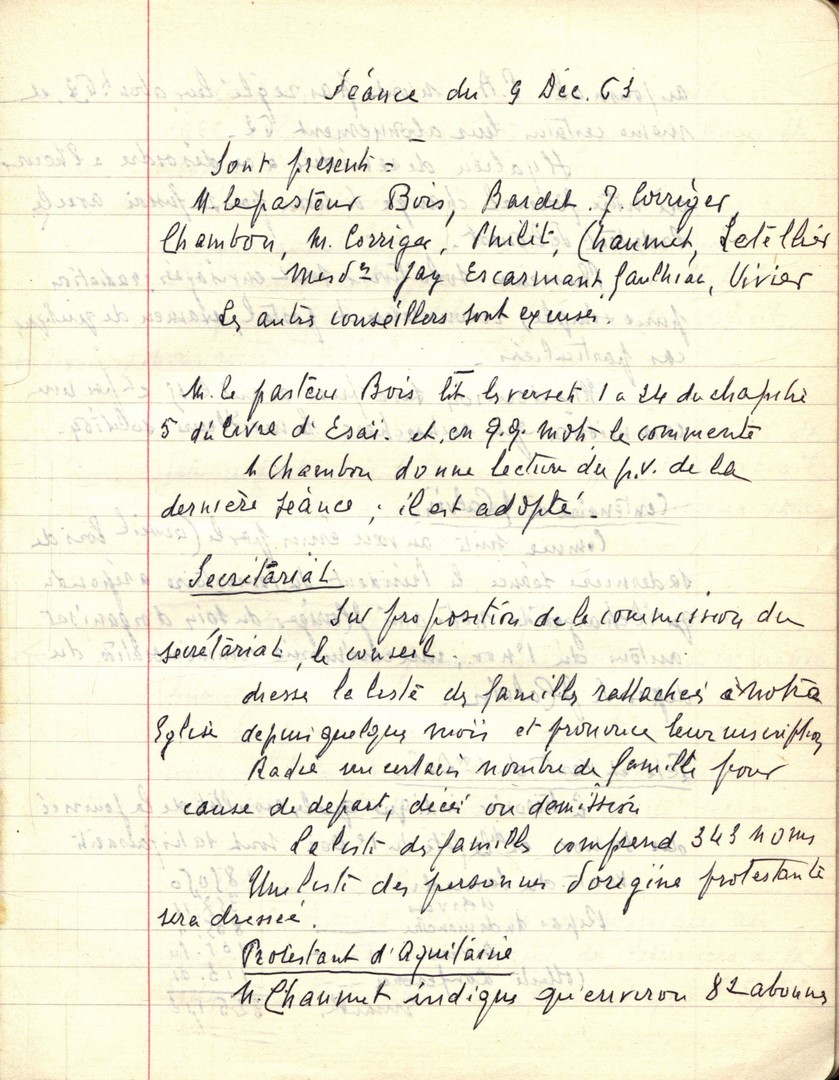 Séance du 9 Déc. 63
Sont présents =
M. le pasteur Bois, Bardet. J. Corriger,
Chambon, M. Corriger, Philit, Chaumet, Letellier
Mesd^es Jay Escarmant Gaulhiac, Vivier
Les autres conseillers sont excusés.
M. le pasteur Bois lit les versets 1 a 24 du chapitre
5 du livre d'Esaï. et, en q.q. mots, le commente
M Chambon donne lecture du p.v. de la
dernière séance ; il est adopté.
Secrétariat
Sur proposition de la commission du
secrétariat, le conseil.
dresse la liste des familles rattachées à notre
Eglise depuis quelques mois et prononce leur inscription
Radie un certain nombre de famille pour
cause de départ, décès ou démission
La liste des familles comprend 343 noms
Une liste des personnes d'origine protestante
sera dressée.
Protestant d'Aquitaine
M. Chaumet indique qu'environ 82 abonnés